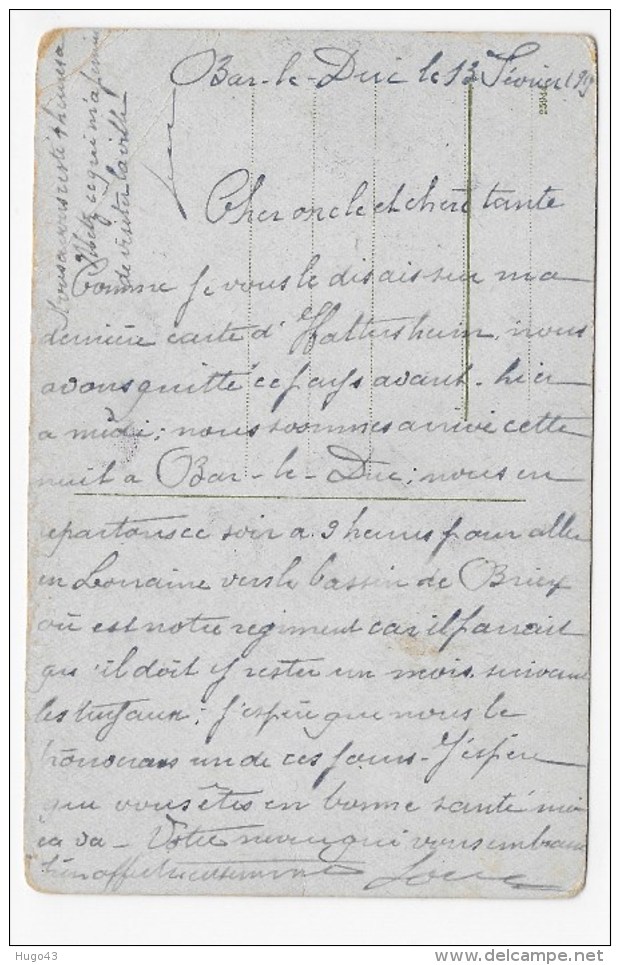 Bar-le-Duc le 13 Février 19
25944
Cher oncle et chère tante
Comme je vous le disais sur ma
dernière carte d'Hattersheim, nous
avons quitté ce pays avant-hier
a midi; nous soommes arrivé cette
nuit a Bar-le-Duc; nous en
repartons ce soir a 9 heures pour aller
en Lorraine vers le bassin de Briey
où est notre regiment car il parrait
qu'il doit y rester un mois suivant
les tuyaux; j'espère que nous le
trouverons un de ces jours. J'espère
que vous êtes en bonne santé moi
ca va - Votre neveu qui vous embrasse
bien affectueusement
nous avons resté 4 heures a
Metz ce qui m'a permis
de visiter la ville
Hugo43
delcampe.net